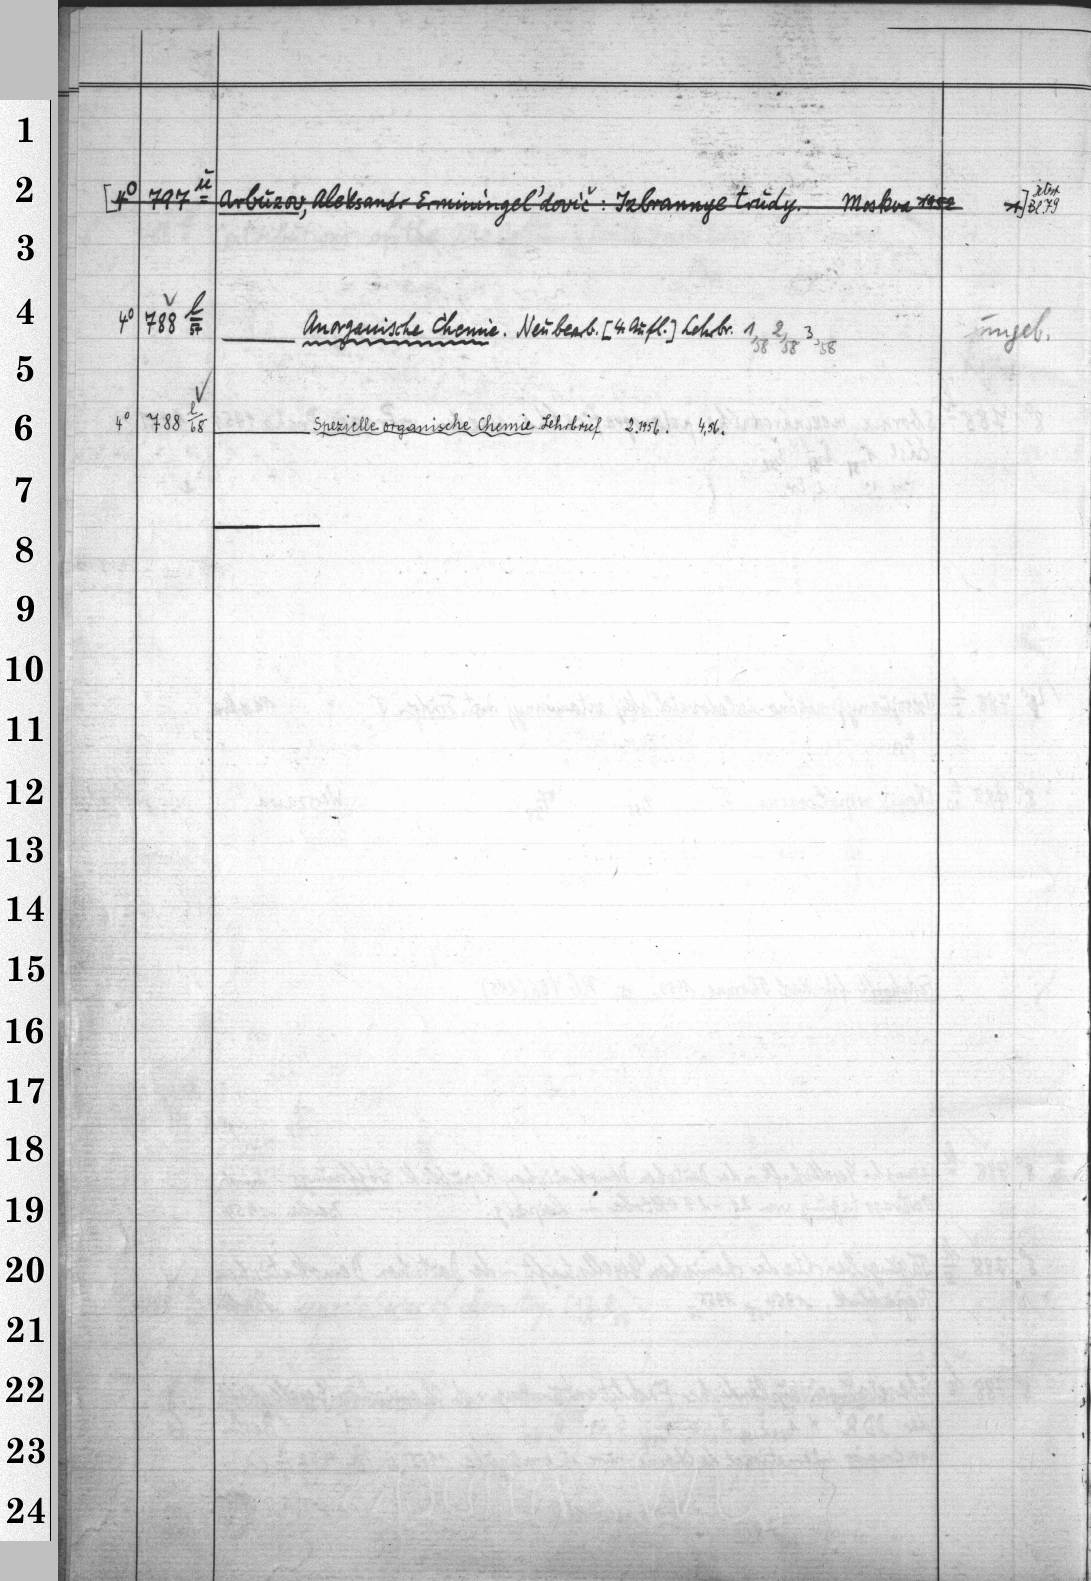 1
2
[4° 797 ü Arbuzov, Aleksandr Erminingel'dovič: Izbrannye trudy. Moskva 1952 ] Bl. 79
3
4
4° 788 l/57 Anorganische Chemie. Neubearb. [4. Aufl.] Lehrbr. 1,58 2,58 3,58 ungeb.
5
6
4° 788 l/68 Spezielle organische Chemie Lehrbrief 2.1956. 4,56.
7
8
9
10
11
12
13
14
15
16
17
18
19
20
21
22
23
24